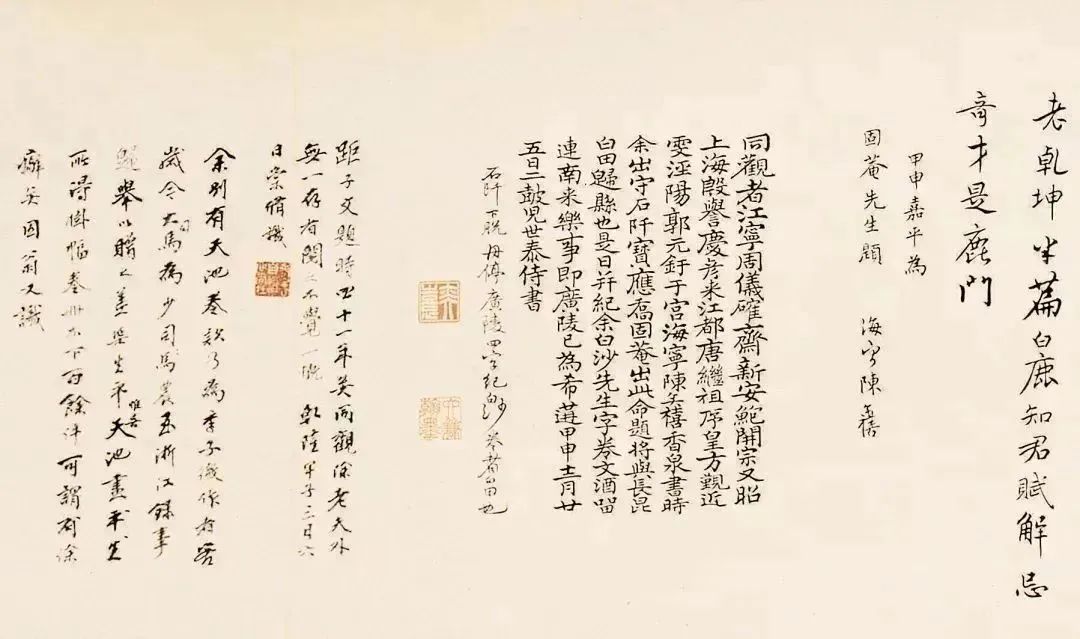 老乾坤半篇白鹿知君賦解忌
奇才是鹿門
甲申嘉平為
固菴先生題　海寧陳
同觀者江寧周儀確齋新安鮑開宗又昭
上海殷譽慶彥来江都唐繼祖序皇方覲近
雯涇陽郭元釪于宮海寧陳奕禧香泉書時
余出守石阡寶應喬固菴出此命題将與長昆
白田歸縣也是日并紀余白沙先生字卷文酒留
連南来樂事即廣陵已為希遘甲申十二月廿
五日二鼓児世泰侍書
石阡下脱毋傅廣陵四字紀白沙卷者白田也
距子文題時四十一年矣同觀除老夫外
無一存者閱之不覺一慨　乾隆甲子三月六
日崇脩識
余別有天池卷款乃為季子微作者客
歲令大
馬為少司馬農五浙江録事
歸舉以贈之蓋渠生平
惟喜
天池畫平生
所得掛幅卷冊不下百餘件可謂有徐
癖矣固翁又識